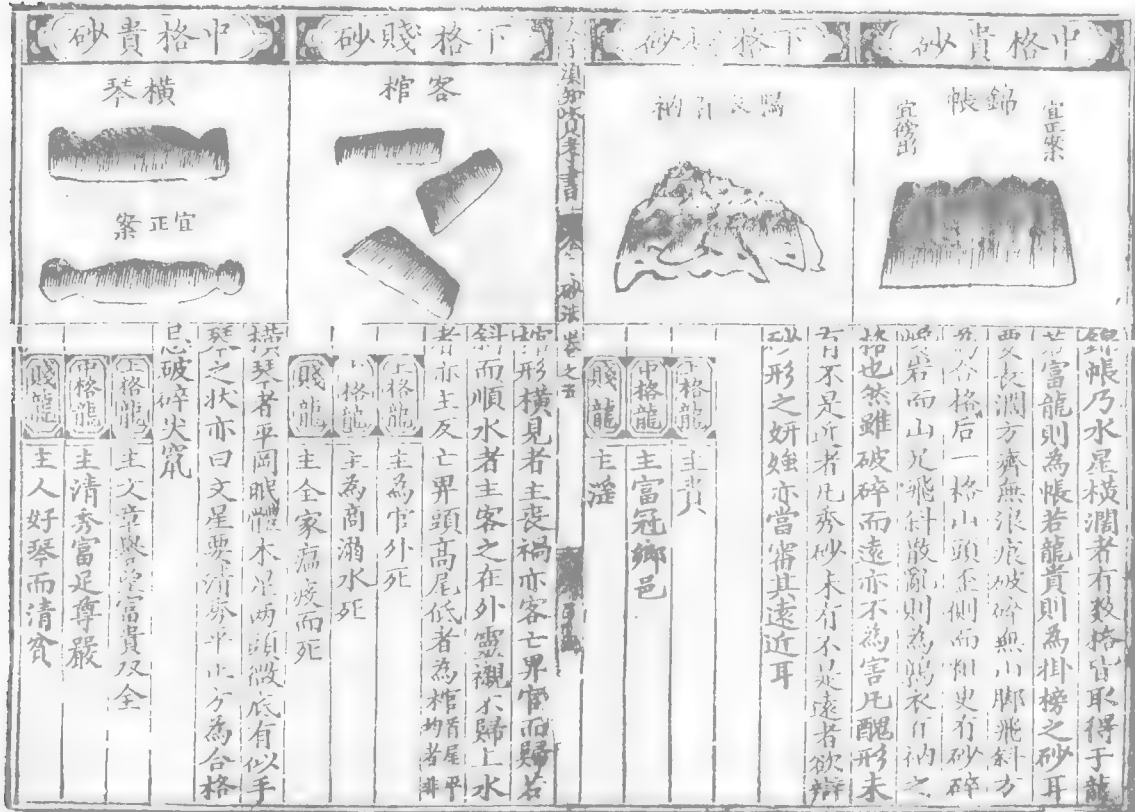 中格貴砂
錦帳
宜正案
宜傍出
錦帳乃水星橫濶者有数格皆取得于龍
若富龍則為帳若龍貴則為掛榜之砂耳
要長濶方齊無浪痕破碎無山脚飛斜方
為合格后一格山頭歪側而粗史有砂碎
岩而山足飛斜散亂則為鶉衣百衲之
格也然雖破碎而遠亦不為害凡醜形未
有不是近者凡秀砂未有不是遠者欲辯
砂形之妍媸亦當審其遠近耳
下格 砂
鶉衣百衲
上格龍 主貴
中格龍 主富冠鄉邑
賤龍 主淫
人子湏知資孝書
砂法卷之五
下格賤砂
客棺
棺形橫見者主喪禍亦客亡畀官而歸若
斜而順水者主客之在外靈櫬不歸上水
者亦主反亡畀頭高尾低者為棺首尾平均者非
上格龍 主為官外死
中格龍 主為商溺水死
賤龍 主全家瘟疫而死
中格貴砂
橫琴
宜正案
橫琴者平岡眠體木星两頭微底有似乎
琴之狀亦曰文星要清秀平正方為合格
忌破碎尖竄
上格龍 主文章 富貴双全
中格龍 主清秀富足尊嚴
賤龍 主人好琴而清貧